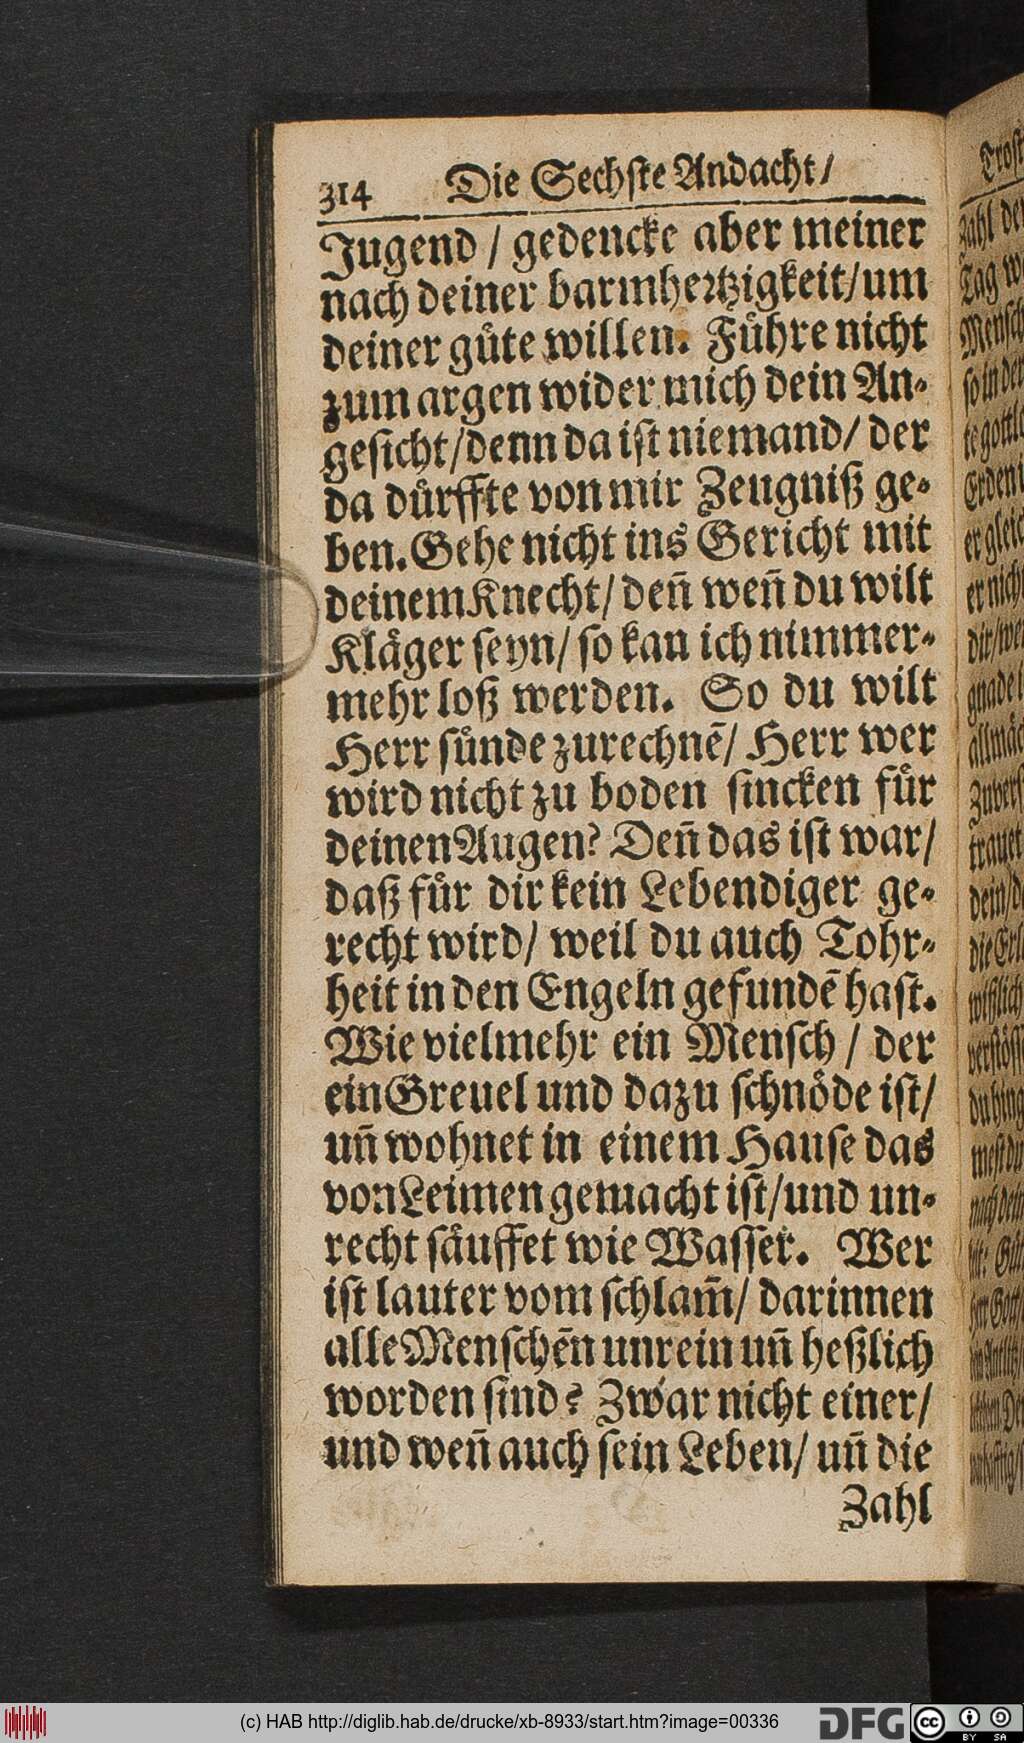 314 Die Sechste Andacht/
Jugend / gedencke aber meiner
nach deiner barmhertzigkeit/um
deiner guͤte willen. Fuͤhre nicht
zum argen wider mich dein An-
gesicht/denn da ist niemand/ der
da duͤrffte von mir Zeugniß ge-
ben. Gehe nicht ins Gericht mit
deinem Knecht/ deñ weñ du wilt
Klaͤger seyn/ so kan ich nimmer-
mehr loß werden. So du wilt
Herr suͤnde zurechnẽ/ Herr wer
wird nicht zu boden sincken fuͤr
deinen Augen? Deñ das ist war/
daß fuͤr dir kein Lebendiger ge-
recht wird/ weil du auch Tohr-
heit in den Engeln gefundẽ hast.
Wie vielmehr ein Mensch / der
ein Greuel und dazu schnoͤde ist/
uñ wohnet in einem Hause das
von Leimen gemacht ist/und un-
recht saͤuffet wie Wasser. Wer
ist lauter vom schlam̃/ darinnen
alle Menschẽn unrein uñ heßlich
worden sind? Zwar nicht einer/
und weñ auch sein Leben/ uñ die
Zahl
Trost
Zahl der
Tag
Mensch
so in der
te gottlo
Erden i
er gleich
er nicht
dir/wer
gnade
allmäch
Zuvers
trauet
dein/d
die Erl
verstöss
du hing
(c) HAB http://diglib.hab.de/drucke/xb-8933/start.htm?image=00336
DFG
cc BY SA